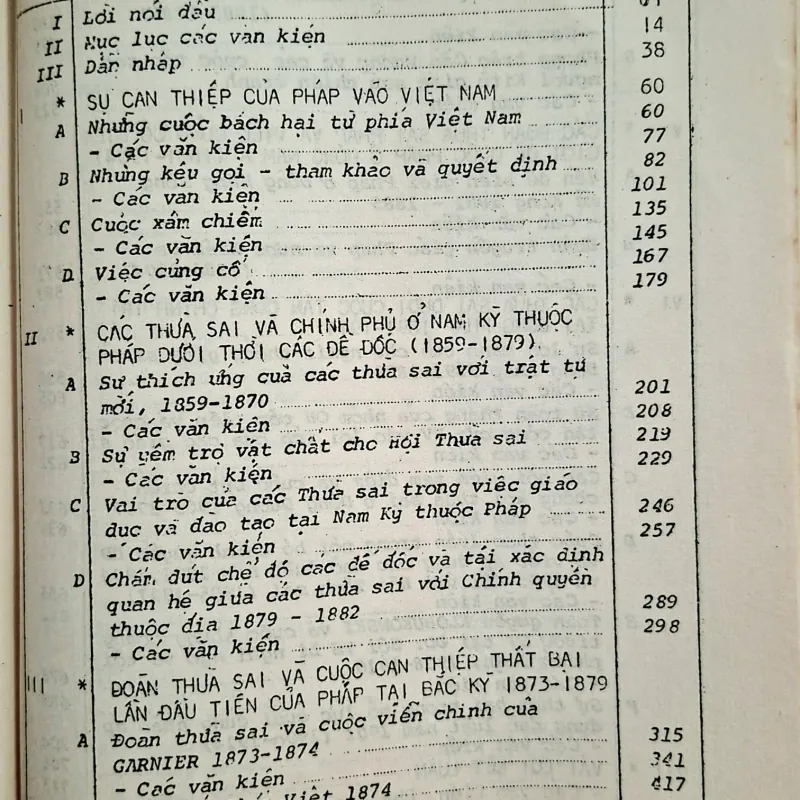 I Lời nói đầu
II Mục lục các văn kiện 14
III Dẫn nhập 38
I * SỰ CAN THIỆP CỦA PHÁP VÀO VIỆT NAM 60
A Những cuộc bách hại từ phía Việt Nam 60
- Các văn kiện 77
B Những kêu gọi - tham khảo và quyết định 82
- Các văn kiện 101
C Cuộc xâm chiếm 135
- Các văn kiện 145
D Việc củng cố 167
- Các văn kiện 179
II * CÁC THỪA SAI VÀ CHÍNH PHỦ Ở NAM KỲ THUỘC
PHÁP DƯỚI THỜI CÁC ĐỀ ĐỐC (1859-1879).
A Sự thích ứng của các thừa sai với trật tự
mới, 1859-1870 201
- Các văn kiện 208
B Sự yểm trợ vật chất cho Hội Thừa sai 219
- Các văn kiện 229
C Vai trò của các Thừa sai trong việc giáo
dục và đào tạo tại Nam Kỳ thuộc Pháp 246
- Các văn kiện 257
D Chấm dứt chế độ các đề đốc và tái xác định
quan hệ giữa các thừa sai với Chính quyền
thuộc địa 1879 - 1882 289
- Các văn kiện 298
III * ĐOÀN THỪA SAI VÀ CUỘC CAN THIỆP THẤT BẠI
LẦN ĐẦU TIÊN CỦA PHÁP TẠI BẮC KỲ 1873-1879
A Đoàn thừa sai và cuộc viễn chinh của
GARNIER 1873-1874 315
- Các văn kiện 341
Việt 1874 417